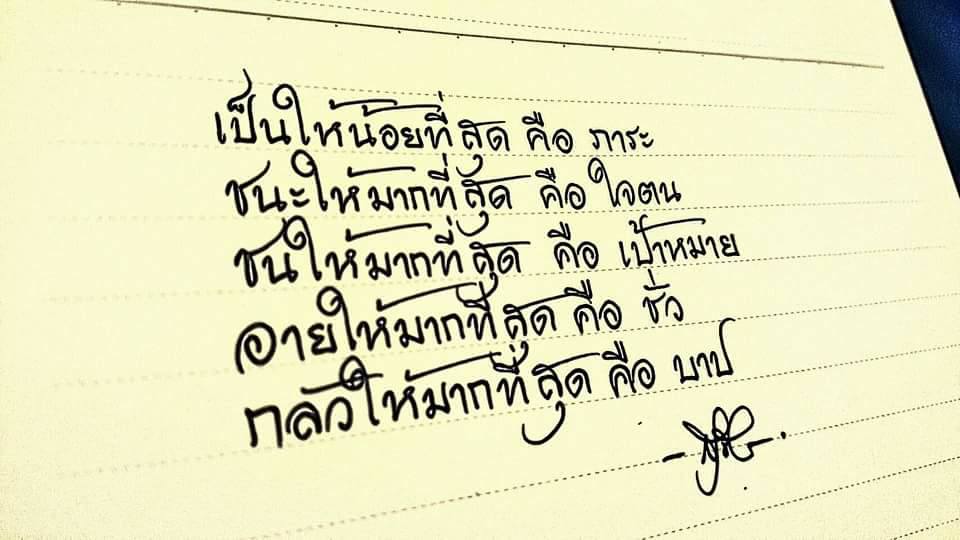 เป็นให้น้อยที่สุด คือ ภาระ
ชนะให้มากที่สุด คือ ใจตน
ชนให้มากที่สุด คือ เป้าหมาย
อายให้มากที่สุด คือ ชั่ว
กลัวให้มากที่สุด คือ บาป